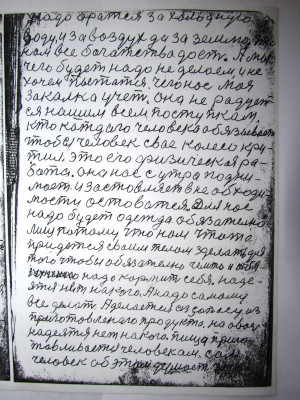 надо братся за холодную
воду и за воздух да за землю, то
ком все богатства дост. А мы
чего будет надо не делаем, и не
хочем пытатся, чего нас моя
закалка учет. она не радует
ся нашим всем поступкам.
кто катдаго человека обязывает
чтобы человек свае колесо кру-
тил, это его физическая ра-
бота, она нас с утра подни
мает и заставляет в необходи
мости оставатся. Для нас
надо будет одежда обязательно
лиш потому что нам что то
придется своим телом зделать для
того чтобы обязательно чемто
надо кормит себя, наде-
ятся нет на кого. А надо самому
все делат. А делается с запасу, из
приготовленаго продукта, на аваз
надеятся нет на кого. пища приго
тавливается человекам, сам
человек об этом думает